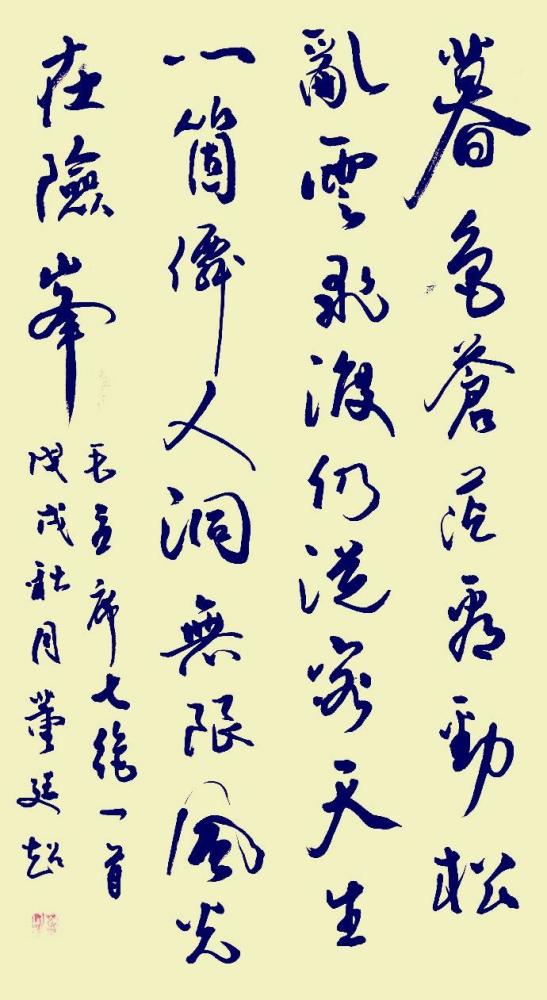 暮色蒼茫看勁松
亂雲飛渡仍從容天生
一箇僊人洞無限風光
在險峯
毛主席七絕一首
戊戌秋月董廷超